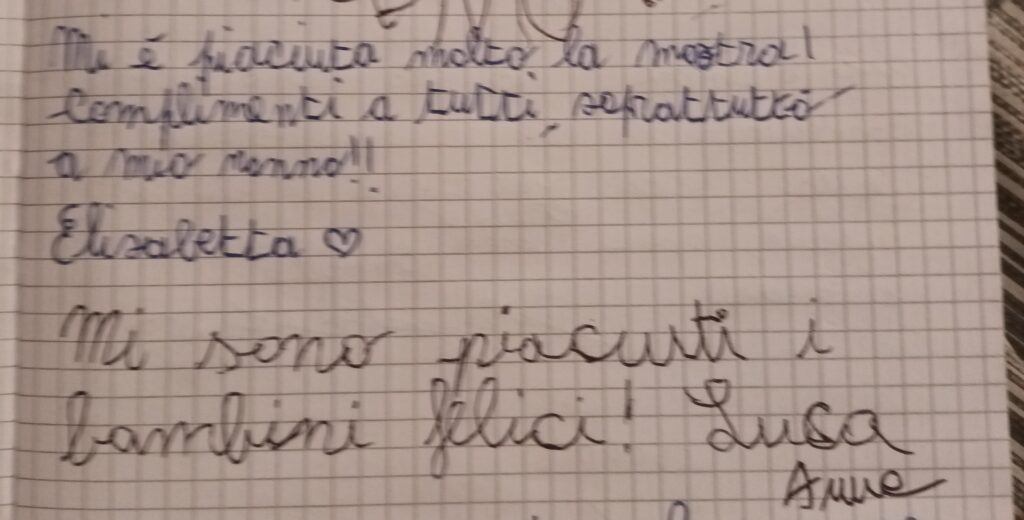 Mi è piaciuta molto la mostra!
Complimenti a tutti, soprattutto
a mio nonno!!
Elisabetta ♡
Mi sono piaciuti i
bambini felici! Luca
Anne